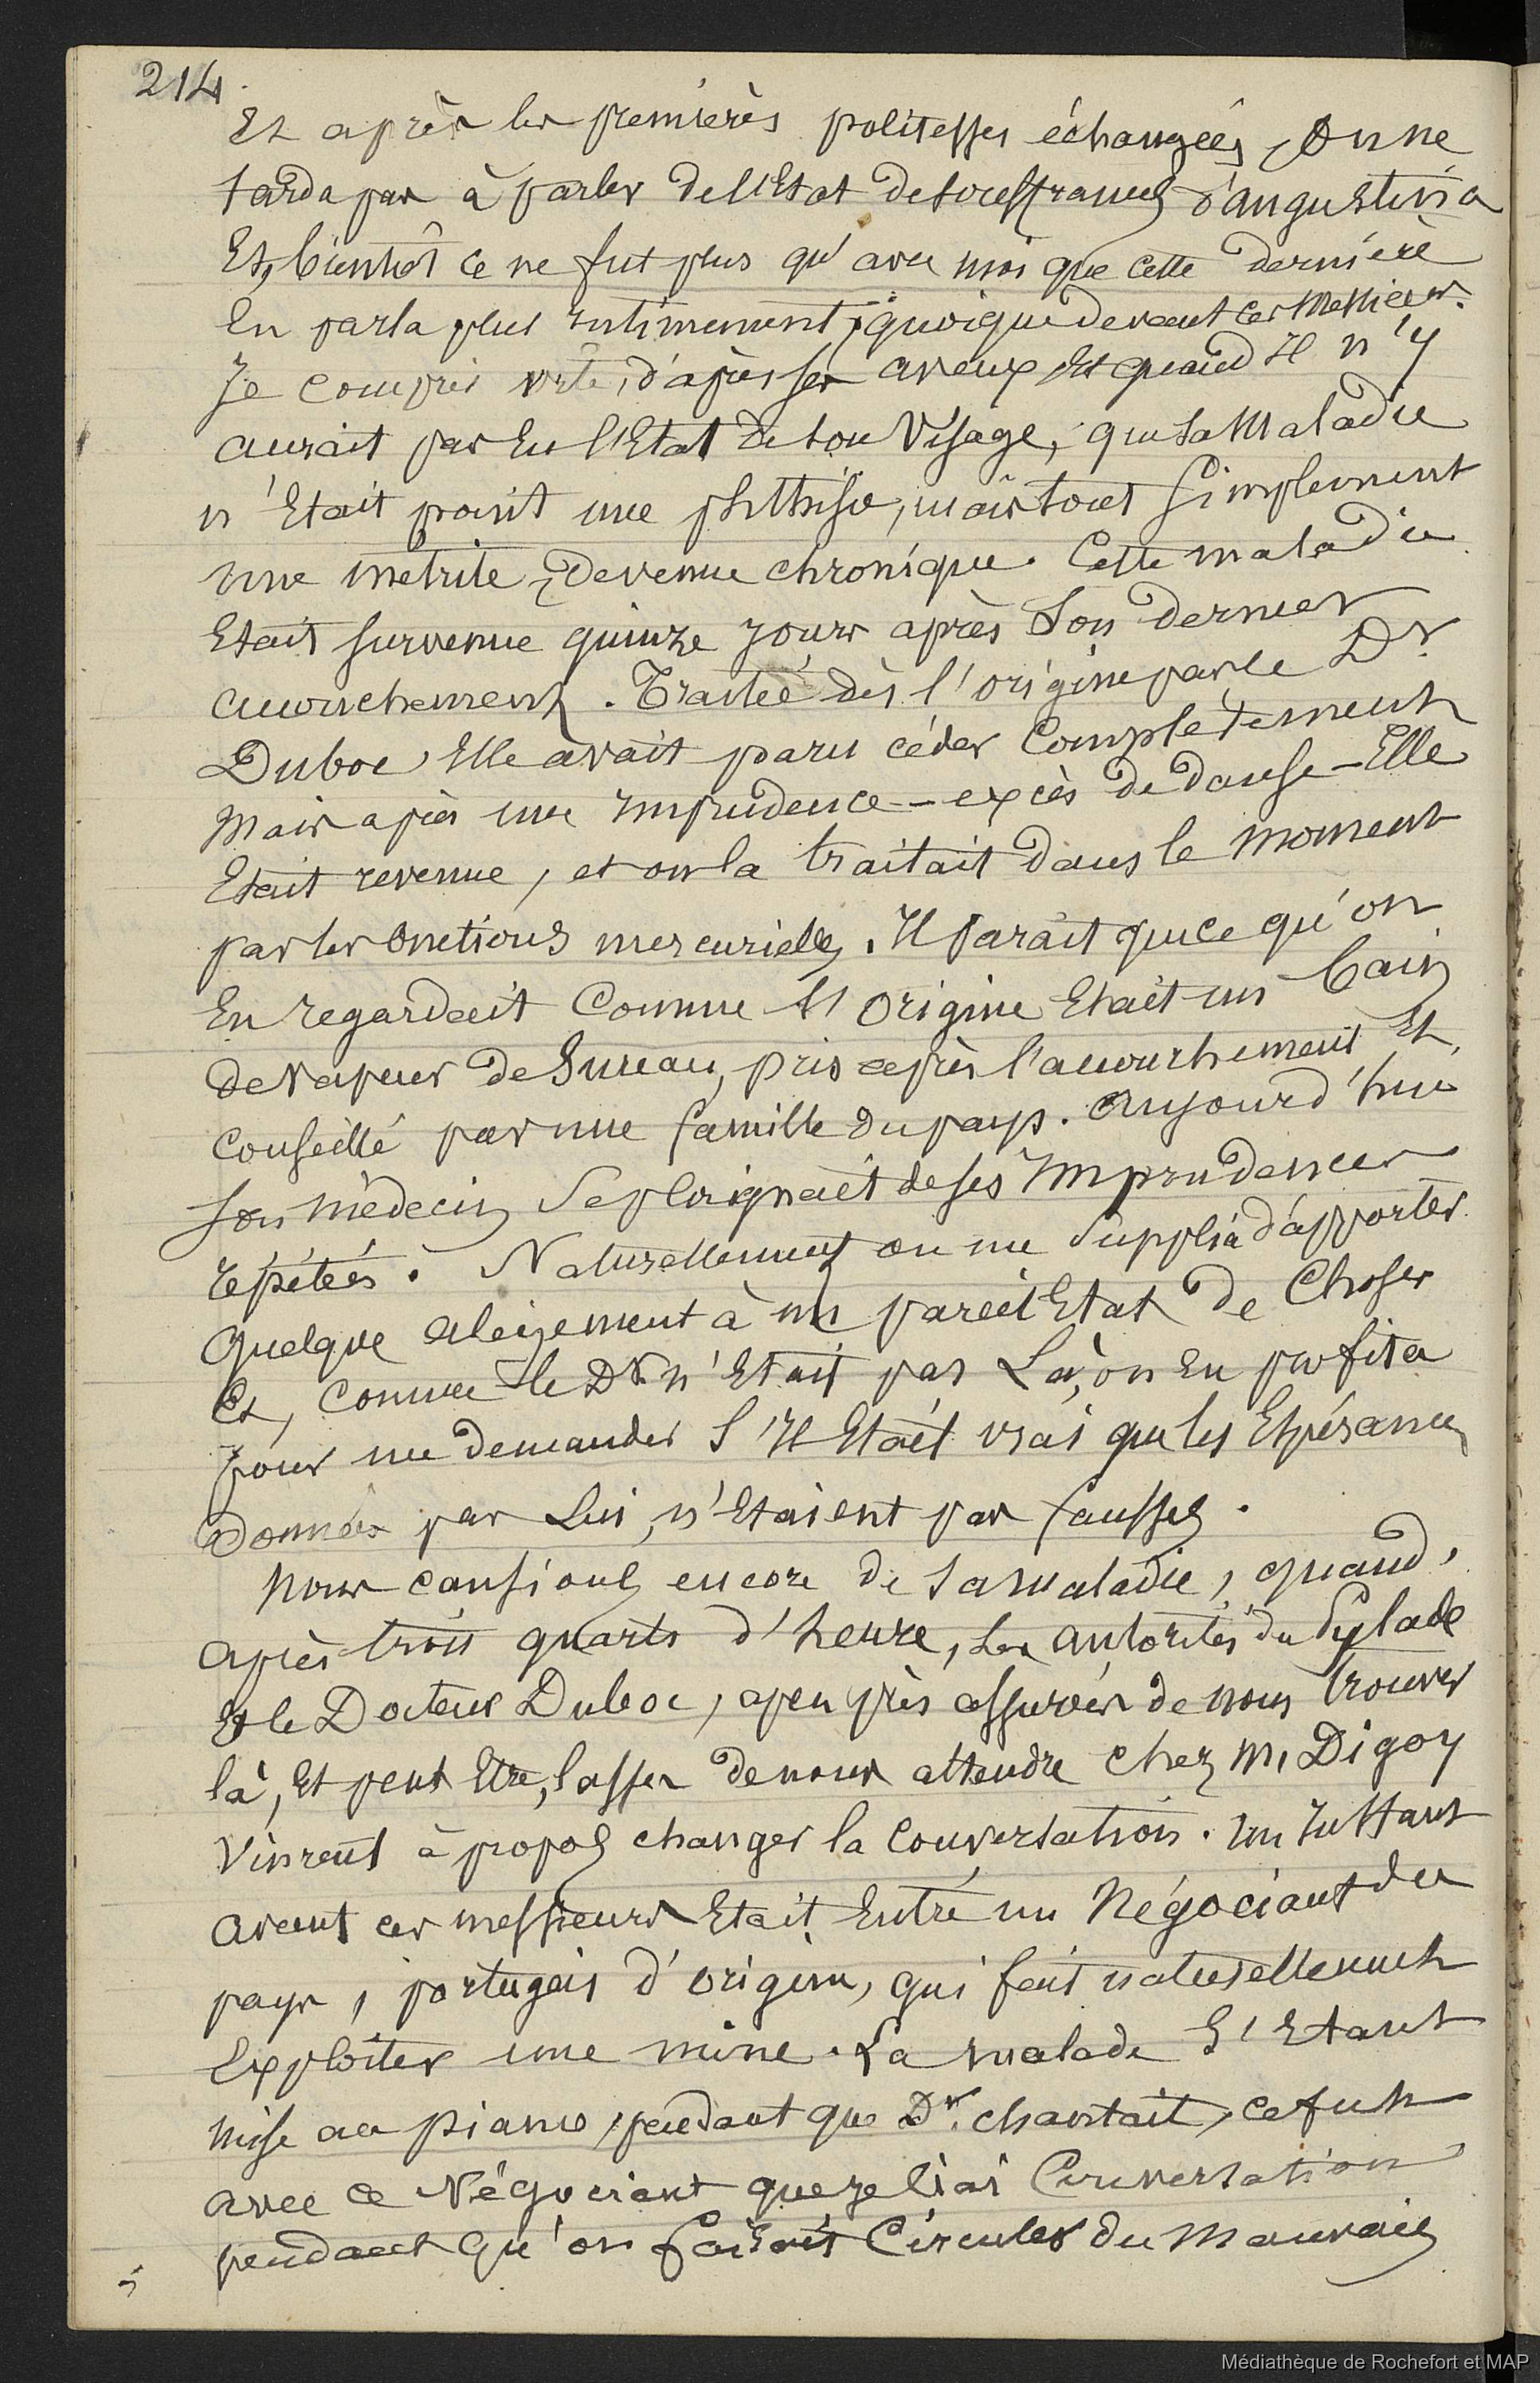 214.
Et après les premières politesses échangées, on ne
tarda pas à parler de l'Etat de souffrances d'angustina
Et, bientôt ce ne fut plus qu'avec moi que cette dernière
En parla plus Intimement, quoique devant ces Messieurs.
Je compris vite, d'après ses aveux Et quand Il n'y
aurait pas Eu l'Etat de son Visage, que sa Maladie
n'Etait point une phthisie, mais tout simplement
une métrite, devenue chronique. Cette maladie
Etait survenue quinze Jours après Son dernier
accouchement. Traitée dès l'origine par le Dr
Duboc, Elle avait paru céder Complètement
Mais après une Imprudence - excès de danse - Elle
Etait revenue, et on la traitait dans le moment
par les Onctions mercurielles. Il parait que ce qu'on
En regardait Comme l'Origine Etait un bain
de Vapeur de Sureau, pris après l'accouchement Et,
Conseillé par une famille du pays. Aujourd'hui
son médecin Se plaignait de ses Imprudences
répétées. Naturellement on me Supplia d'apporter
quelque alégement à un pareil Etat de Choses
Et, comme le Dr n'Etait pas Là, on En profita
pour me demander S'Il Etait vrai que les Espérances
Données par Lui, n'Etaient pas fausses.
Nous causions encore de sa maladie, quand,
après trois quarts d'heure, Les autorités du Pylade
Et le Docteur Duboc, apeu près assurés de nous trouver
là, Et peut Etre, lassés de nous attendre chez M. Digoy
Vinrent à propos changer la Conversation. Un Instant
avant ces messieurs Etait Entré un Négociant du
pays, portugais d'origine, qui fait naturellement
Exploiter une mine. La malade S'Etant
mise au piano, pendant que Dr. chantait, ce fut
avec ce Négociant que Je liai Conversation
pendant qu'on faisait Circuler du Mauvais
Médiathèque de Rochefort et MAP